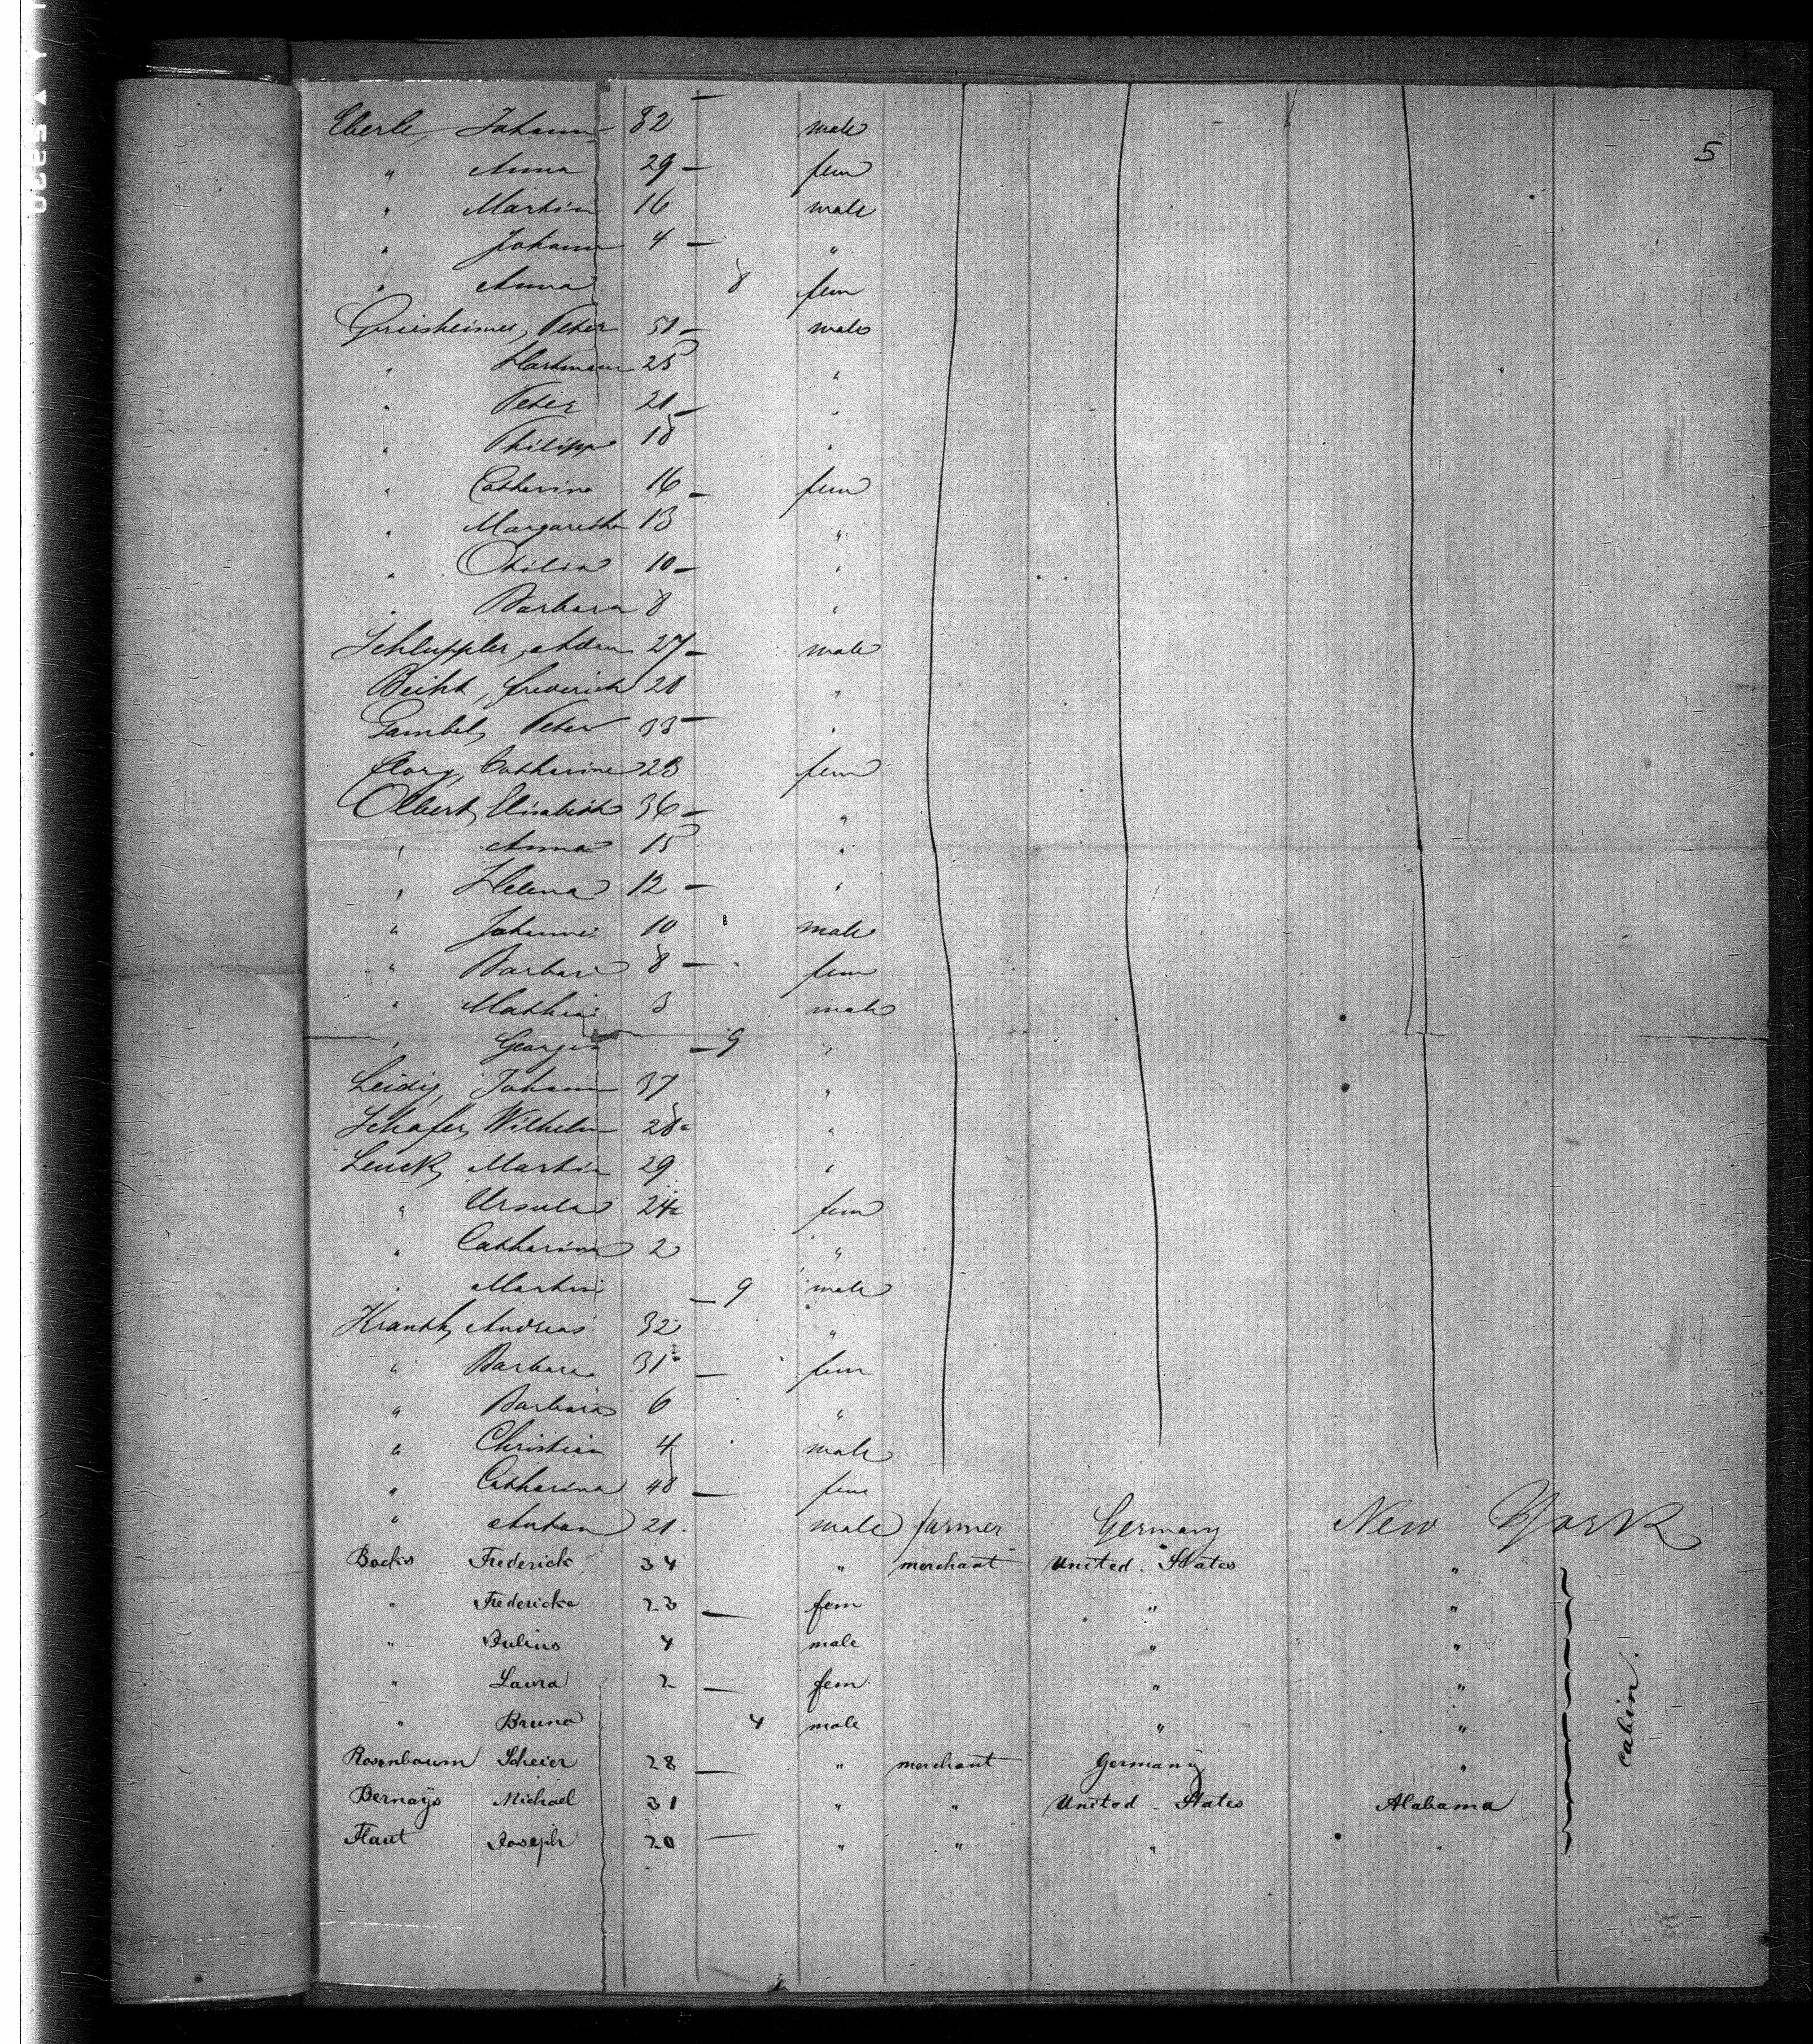 5
Eberle, Johann 32 male
" Anna 29 — fem
" Martin 16 male
" Johann 4 — "
" Anna 8 fem
Griesheimer, Peter 51 — male
" Hartmann 25 "
" Peter 21 — "
" Philipp 18 "
" Catharina 16 — fem
" Margaretha 13 "
" Otilia 10 — "
" Barbara 8 "
Schluppler, Adam 27 — male
Beiht, Frederich 28 "
Gambel, Peter 33 — "
Catharine 23 fem
Olbert, Elisabeth 36 — "
" Anna 15 "
" Helena 12 — "
" Johannes 10 male
" Barbara 8 — fem
" Mathias 3 male
" Georg — 9 "
Leidig, Johann 37 "
Schafer, Wilhelm 28 "
Leuck, Martin 29 "
" Ursula 24 fem
" Catharina 2 "
" Martin — 9 male
Kranth, Andreas 32 "
" Barbara 31 — fem
" Barbara 6 "
" Christian 4 male
" Catharina 48 — fem
" Anton 21 male farmer Germany New York
Backs Frederick 34 " merchant United States "
" Fredericka 23 — fem " "
" Julius 4 male " "
" Laura 2 — fem " "
" Bruno 4 male " "
Rosenbaum Scheier 28 — " merchant Germany "
Bernays Michael 31 " " United States Alabama
Flaut Joseph 20 — " " " "
cabin.